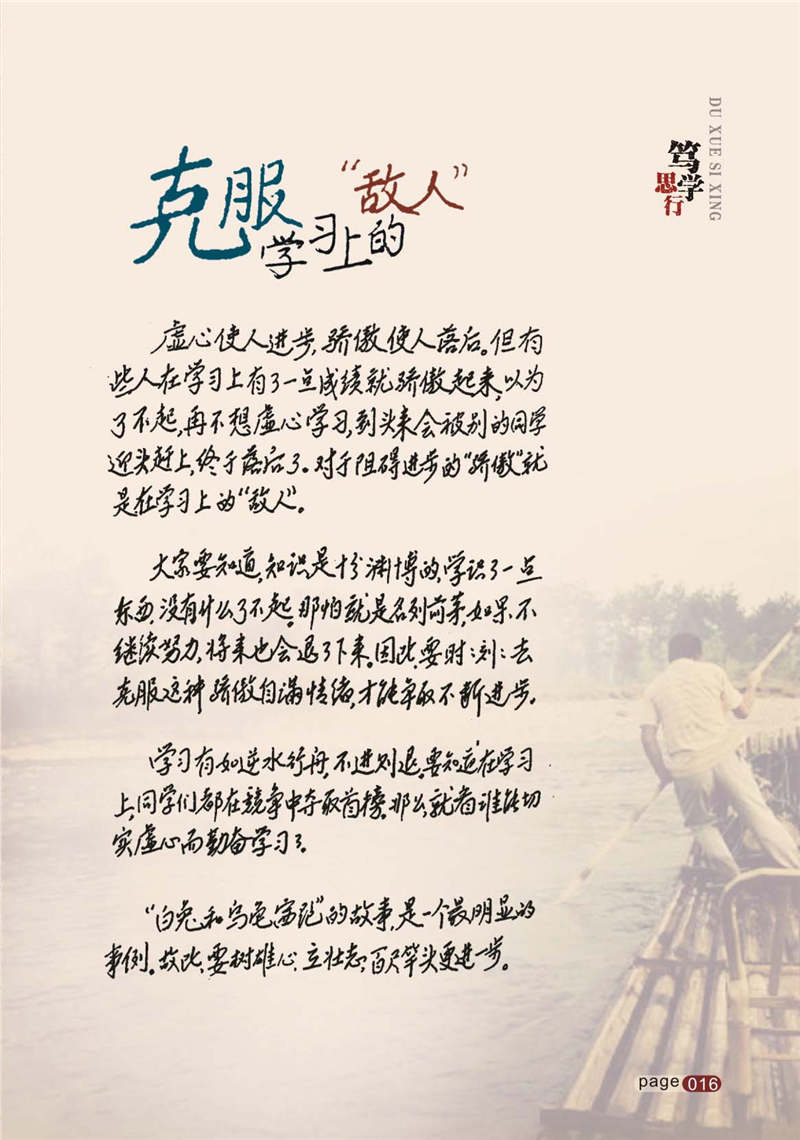 克服
学习上的
“敌人”
笃学
思行
DU XUE SI XING
虚心使人进步,骄傲使人落后。但有
些人在学习上有了一点成绩就骄傲起来,以为
了不起,再不想虚心学习,到头来会被别的同学
迎头赶上,终于落后了。对于阻碍进步的“骄傲”就
是在学习上的“敌人”。
大家要知道,知识是十分渊博的,学识了一点
东西,没有什么了不起。那怕就是名列前茅,如果不
继续努力,将来也会退了下来。因此,要时:刻:去
克服这种骄傲自满情绪,才能争取不断进步。
学习有如逆水行舟,不进则退。要知道在学习
上,同学们都在竞争中夺取首榜。那么就看谁能切
实虚心而勤奋学习了。
“白兔和乌龟赛跑”的故事,是一个最明显的
事例。故此,要树雄心,立壮志,百尺竿头更进一步。
page 016